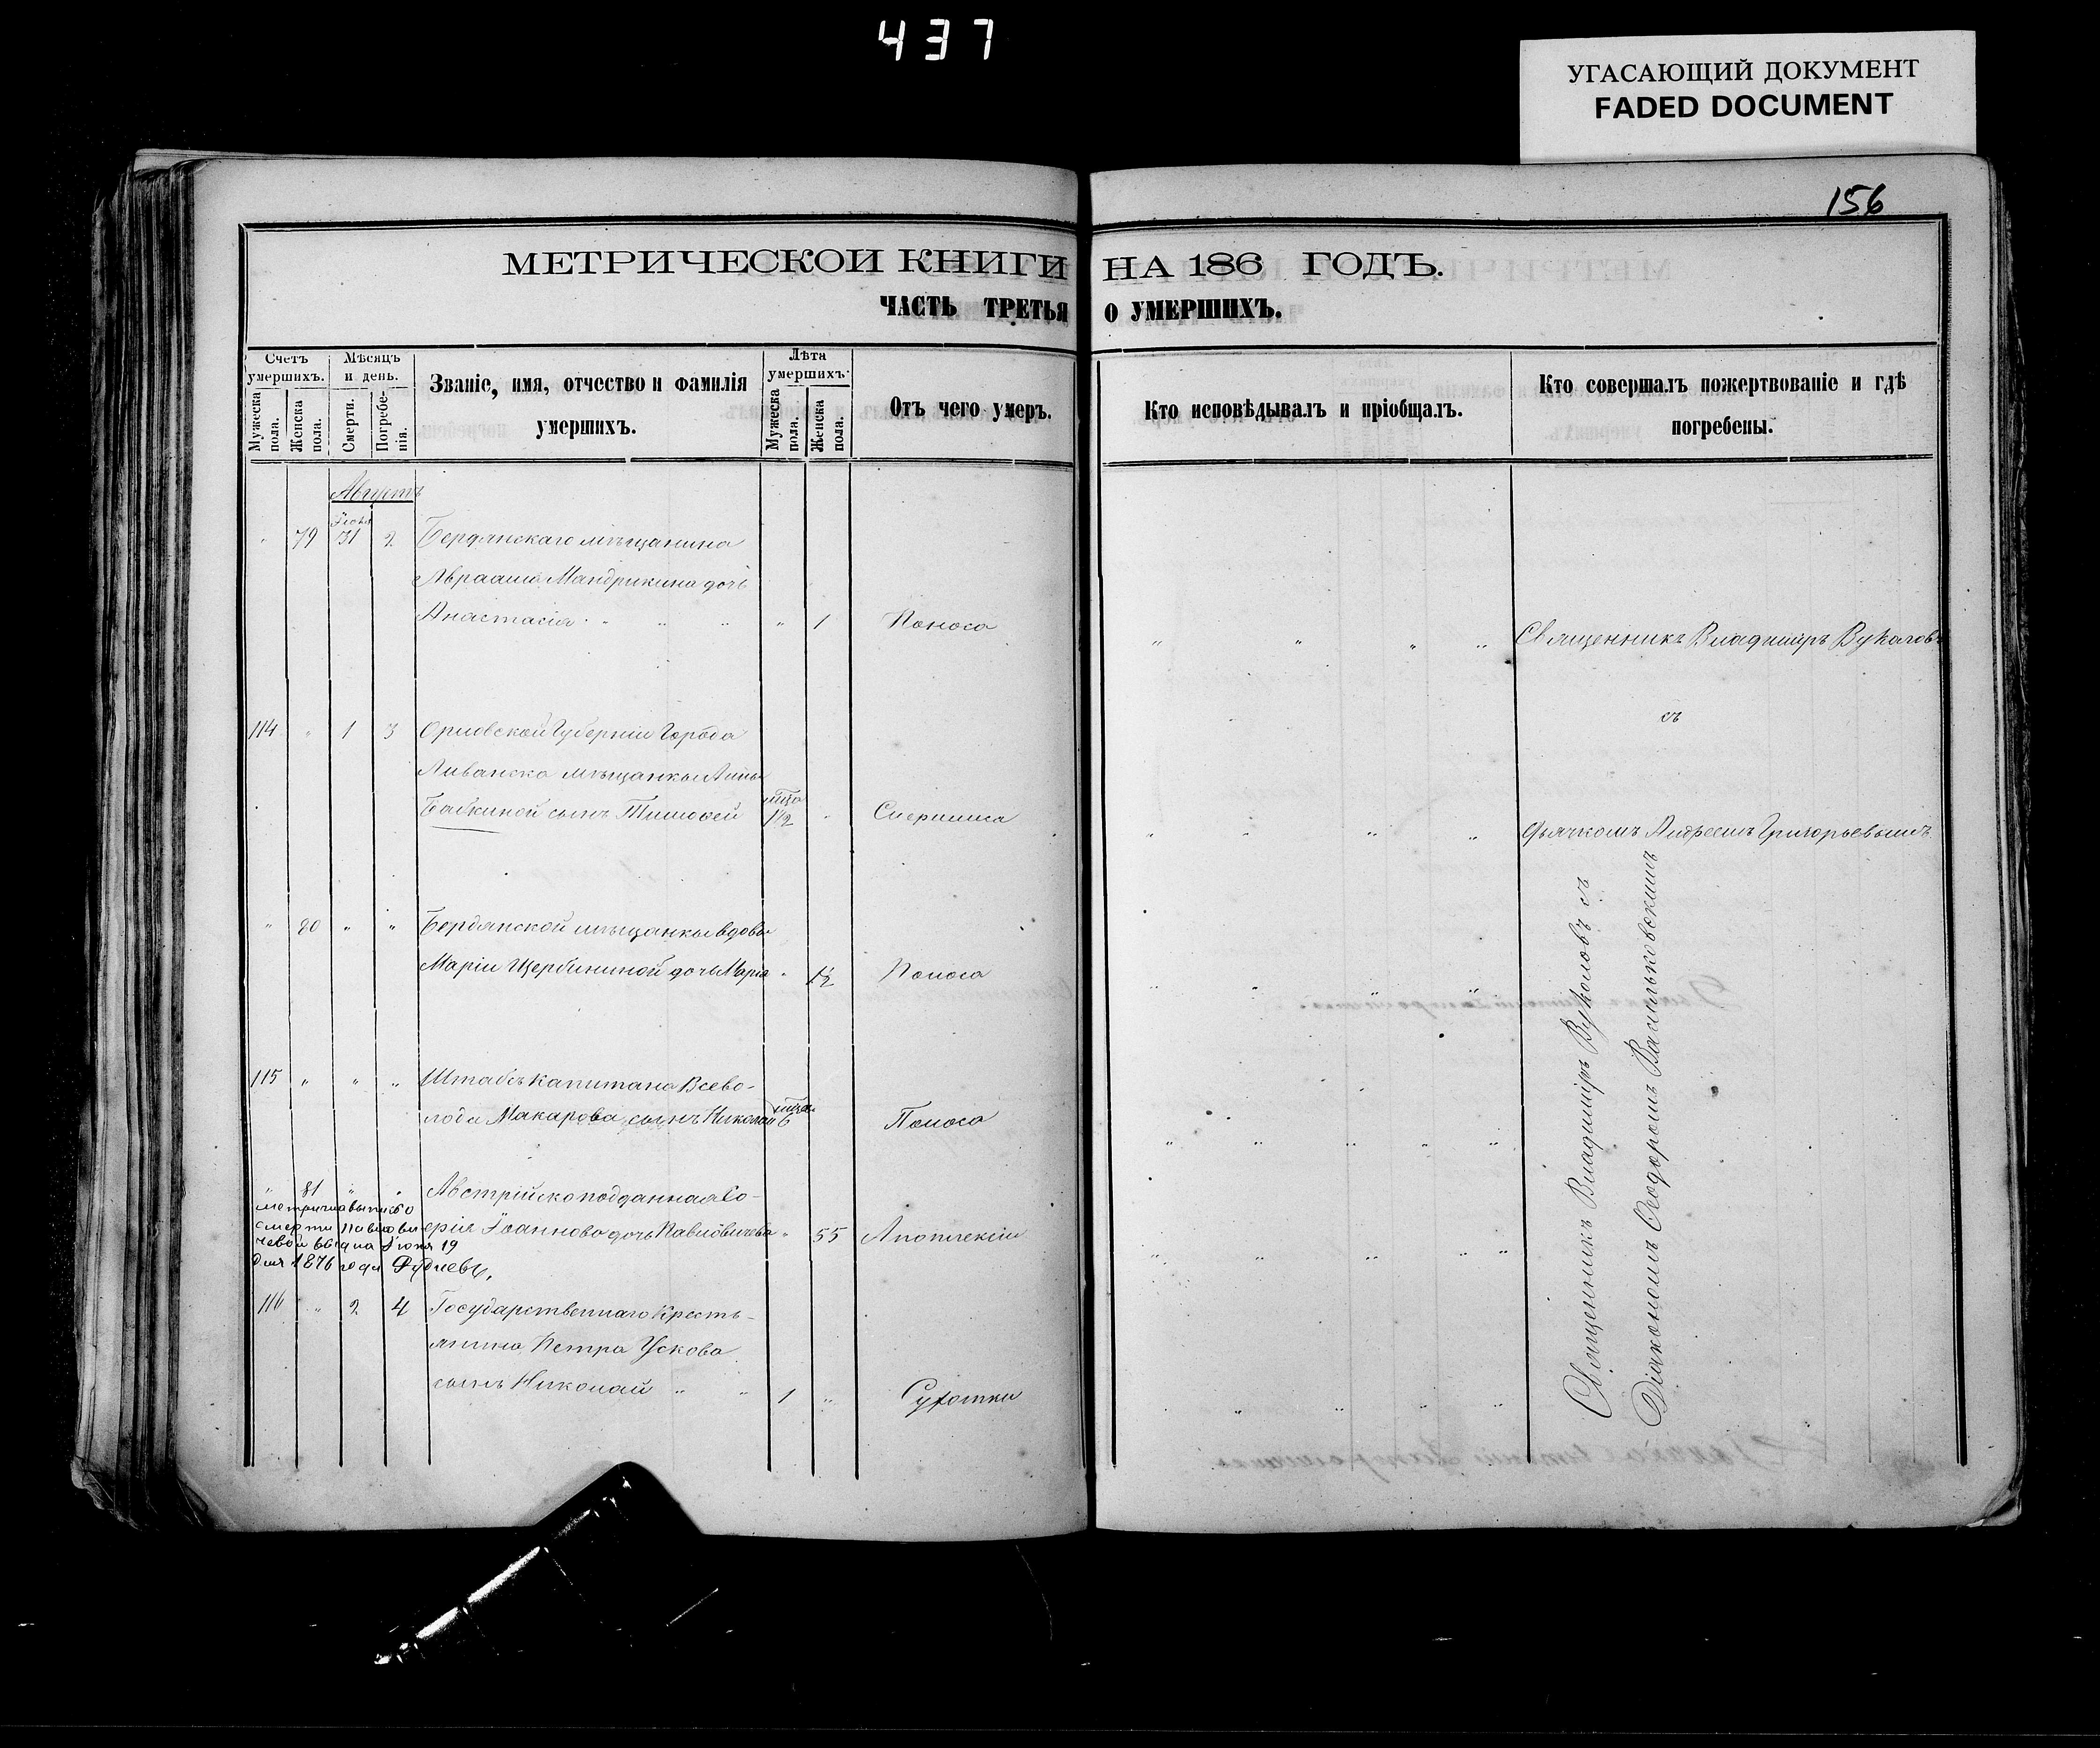 437
УГАСАЮЩИЙ ДОКУМЕНТ
FADED DOCUMENT
156
МЕТРИЧЕСКОИ КНИГИ НА 186 ГОДЪ.
ЧАСТЬ ТРЕТЬЯ О УМЕРШИХЪ.
Счетъ умершихъ.
Мужеска пола.
Женска пола.
Мѣсяцъ и день.
Смерти.
Погребенія.
Званіе, имя, отчество и фамилія умершихъ.
Лѣта умершихъ.
Мужеска пола.
Женска пола.
Отъ чего умеръ.
Кто исповѣдывалъ и пріобщалъ.
Кто совершалъ пожертвованіе и гдѣ погребены.
Августъ
79 31 2 Бердянскаго мѣщанина
Авраама Мандрикина дочь
Анастасія " " " " 1 Поноса
Священникъ Владиміръ Вуколовъ
съ
114 " 1 3 Орловской Губерніи Города
мѣщанки Анны
Бабкиной сынъ Тимофей 1½ "
дьячкомъ Андреемъ Григорьевымъ
" 80 " " Бердянской мѣщанки вдовы
Маріи Щербининой дочь Марія " 1½ Поноса
115 " " " Штабсъ капитана Всево-
лода Макарова сынъ Николай 6 Поноса
" 81 " " Австрійско подданная
Іоаннова дочь Павловичева " 55 Апоплексіи
смерти Павлови
чевой выдана Іюня 19
дня 1876 года Рудневъ.
116 " 2 4 Государственнаго Кресть-
янина Петра Ускова
сынъ Николай " " 1 " Сухотки
Священникъ Владиміръ Вуколовъ съ
Діакономъ Ѳеодоромъ Васильковскимъ